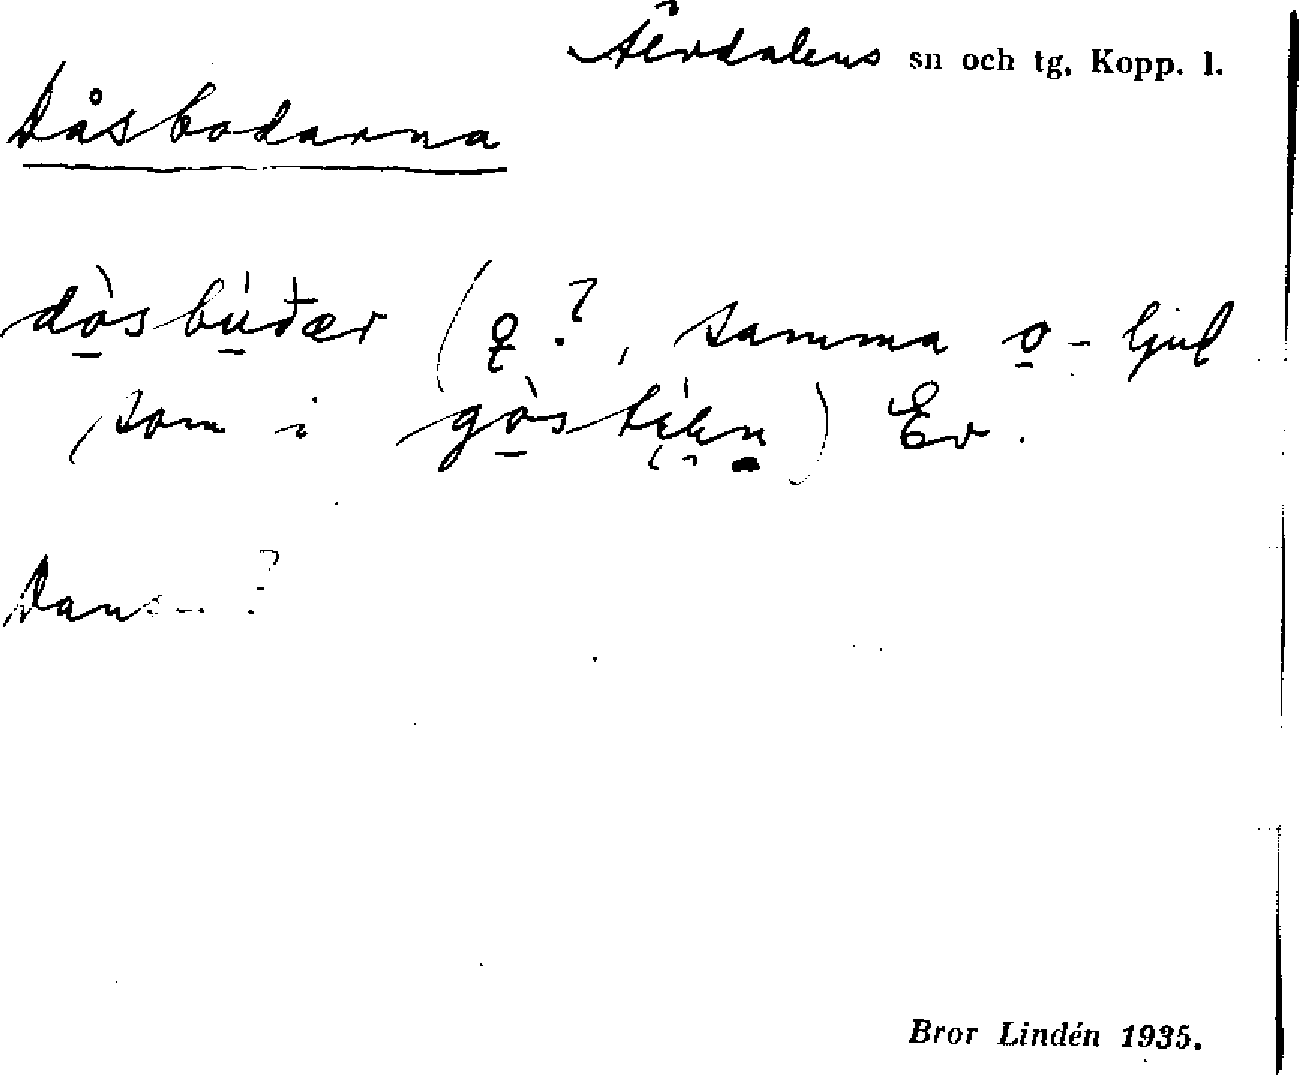 Älvdalens sn och tg, Kopp. l.
Dåsbodarna
dò̠sbù̠đær (ǫ?, samma o̠-ljud
som i gò̠stiln) Ev.
Dans-?
Bror Lindén 1935.